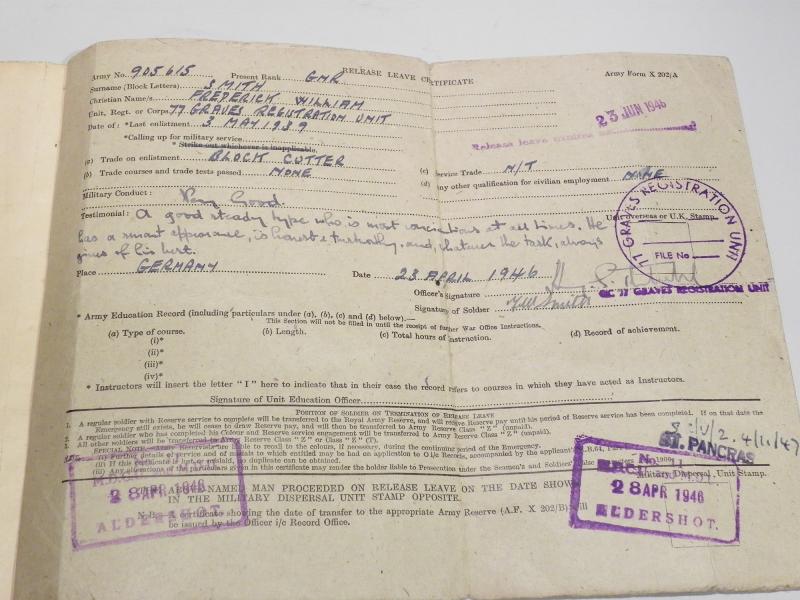 RELEASE LEAVE CERTIFICATE
Army Form X 202/A
Army No. 905615 Present Rank GNR
Surname (Block Letters) SMITH
Christian Name/s FREDERICK WILLIAM
Unit, Regt. or Corps 77 GRAVES REGISTRATION UNIT
Date of : *Last enlistment 3 MAY 1939
*Calling up for military service
* Strike out whichever is inapplicable.
23 JUN 1946
Release leave expires
(a) Trade on enlistment BLOCK CUTTER
(c) Service Trade N/T
(b) Trade courses and trade tests passed NONE
(d) Any other qualification for civilian employment NONE
Military Conduct : Very Good.
Testimonial: A good steady type who is most conscientious at all times. He
has a smart appearance, is honest & trustworthy, and, whatever the task, always
gives of his best.
Unit overseas or U.K. Stamp.
77 GRAVES REGISTRATION UNIT
FILE No
Place GERMANY Date 23 APRIL 1946
Officer's Signature
OC 77 GRAVES REGISTRATION UNIT
Signature of Soldier FW Smith
* Army Education Record (including particulars under (a), (b), (c) and (d) below).—
This Section will not be filled in until the receipt of further War Office Instructions.
(a) Type of course. (b) Length. (c) Total hours of instruction. (d) Record of achievement.
(i)*
(ii)*
(iii)*
(iv)*
* Instructors will insert the letter "I" here to indicate that in their case the record refers to courses in which they have acted as Instructors.
Signature of Unit Education Officer
POSITION OF SOLDIER ON TERMINATION OF RELEASE LEAVE
1. A regular soldier with Reserve service to complete will be transferred to the Royal Army Reserve, and will receive Reserve pay until his period of Reserve service has been completed. If on that date the
Emergency still exists, he will cease to draw Reserve pay, and will then be transferred to Army Reserve Class "Z" (unpaid).
2. A regular soldier who has completed his Colour and Reserve service engagement will be transferred to Army Reserve Class "Z" (unpaid).
3. All other soldiers will be transferred to Army Reserve Class "Z" or Class "Z" (T).
SPECIAL NOTE. Army Reservists are liable to recall to the colours, if necessary, during the continued period of the Emergency.
4/11/47
ST. PANCRAS
Military Dispersal Unit Stamp.
28 APR 1946
ALDERSHOT.
28 APR 1946
ALDERSHOT.
THE ABOVE-NAMED MAN PROCEEDED ON RELEASE LEAVE ON THE DATE SHOWN
IN THE MILITARY DISPERSAL UNIT STAMP OPPOSITE.
N.B.—A certificate showing the date of transfer to the appropriate Army Reserve (A.F. X 202/B) will
be issued by the Officer i/c Record Office.